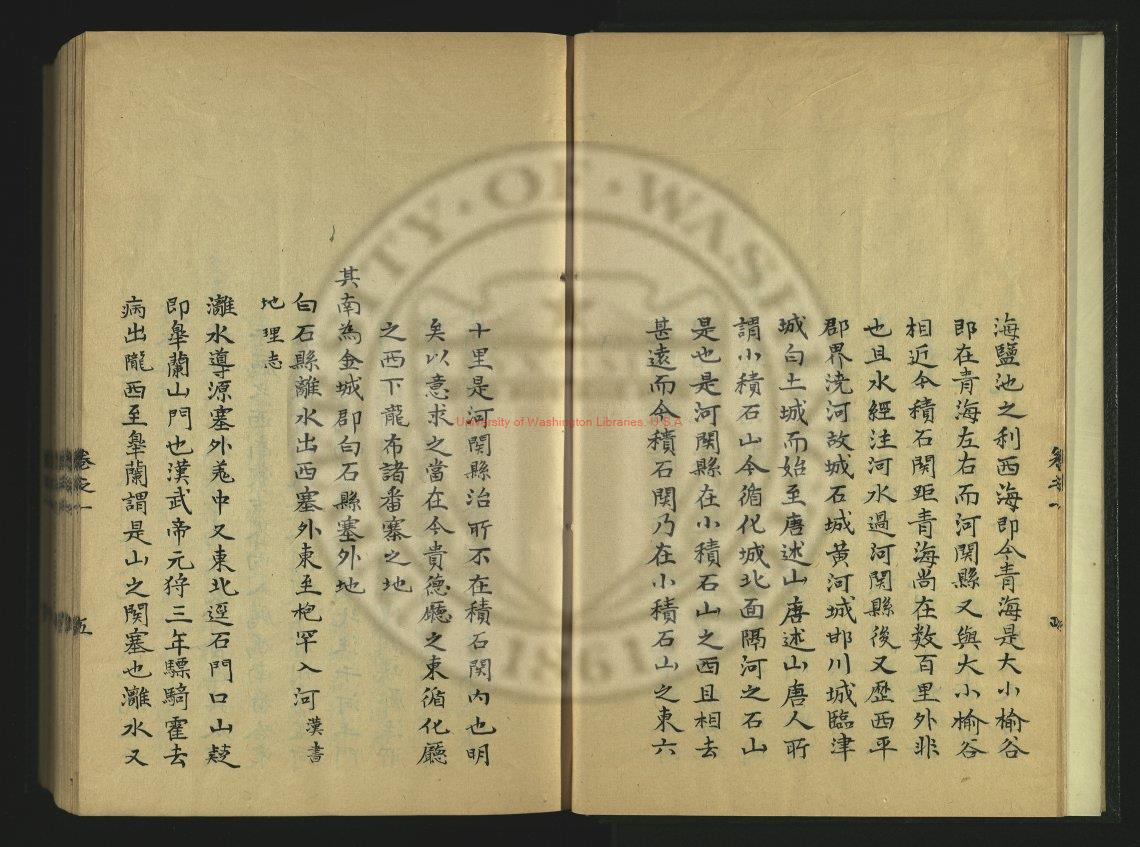 海鹽池之利西海即今青海是大小榆谷
即在青海左右而河関縣又與大小榆谷
相近今積石関距青海尚在数百里外非
也且水經注河水過河関縣後又歴西平
郡界洮河故城石城黄河城邯川城臨津
城白土城而始至唐述山唐述山唐人所
謂小積石山今循化城北面隔河之石山
是也是河関縣在小積石山之西且相去
甚遠而今積石関乃在小積石山之東六
十里是河関縣治所不在積石関內也明
矣以意求之當在今貴德廳之東循化廳
之西下龍布諸番寨之地
其南為金城郡白石縣塞外地
白石縣離水出西塞外東至枹罕入河 漢書
地理志
灕水導源塞外羗中又東北逕石門口山
即臯蘭山門也漢武帝元狩三年驃騎霍去
病出隴西至臯蘭謂是山之関塞也灕水又
卷之一
五
University of Washington Libraries, U.S.A
UNIVERSITY OF WASHINGTON
1861